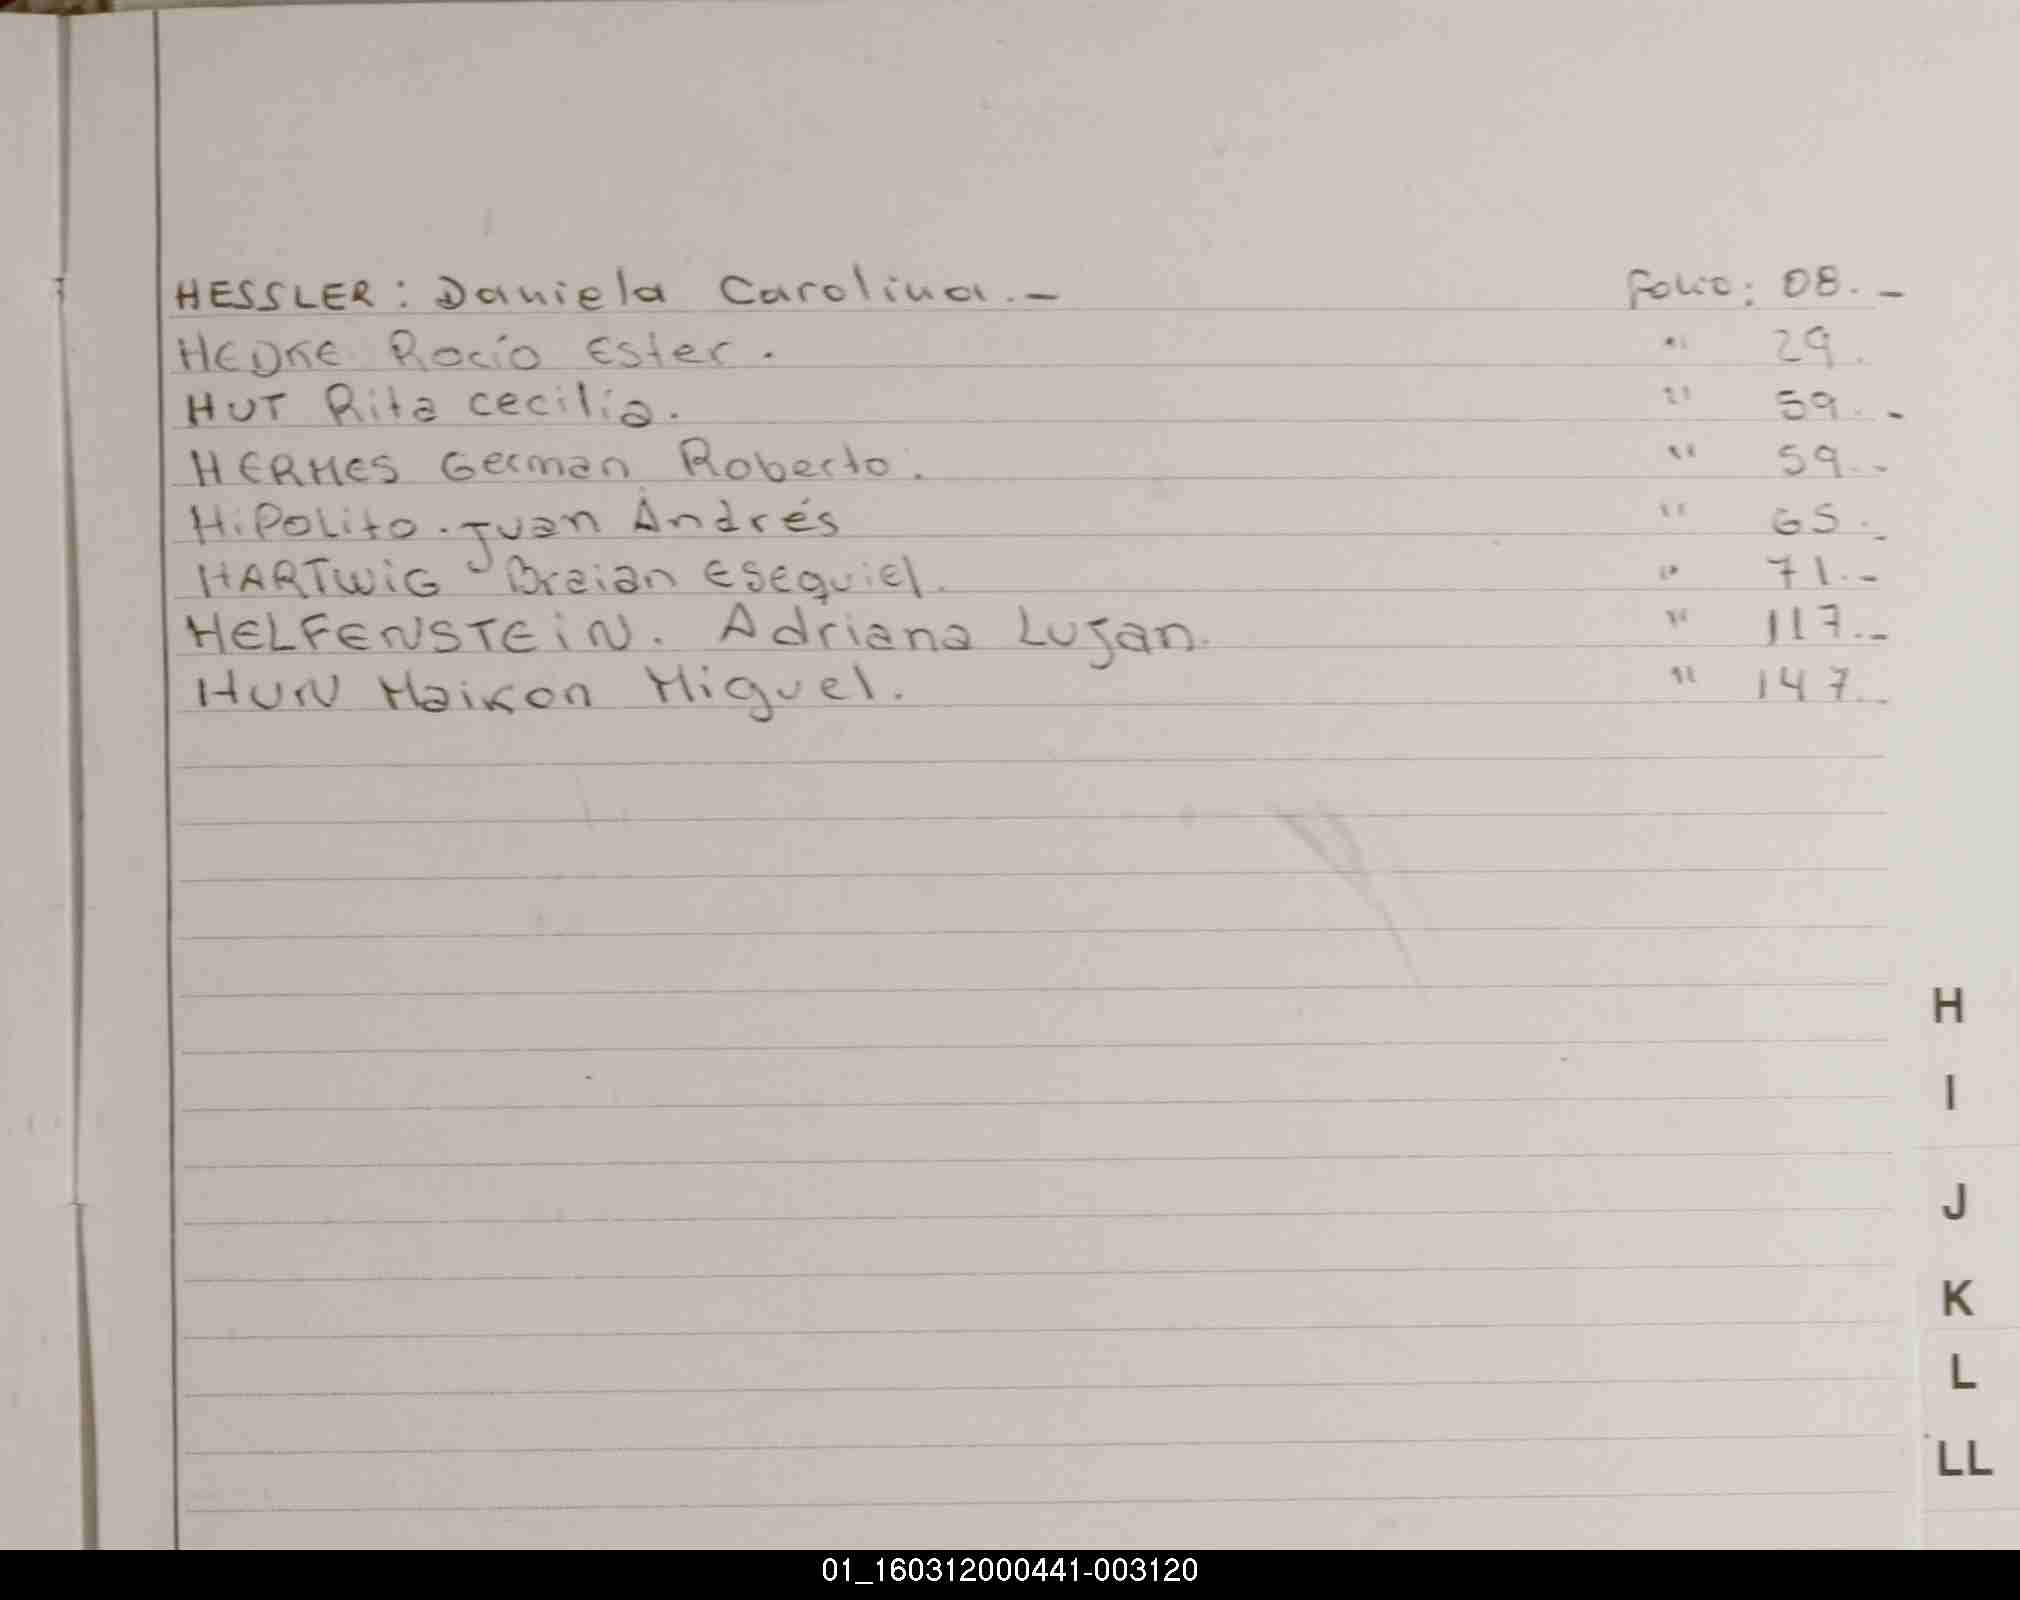 HESSLER: Daniela Carolina.- Folio: 08.-
HEDKE Rocío Ester. " 29.
HUT Rita cecilia. " 59.-
HERMES German Roberto. " 59.-
HiPoLito. Juan Andrés " 65.-
HARTWiG Braian Esequiel. " 71.-
HELFENSTEiN. Adriana Lujan. " 117.-
HUN Maikon Miguel. " 147.-
H
I
J
K
L
LL
01_160312000441-003120